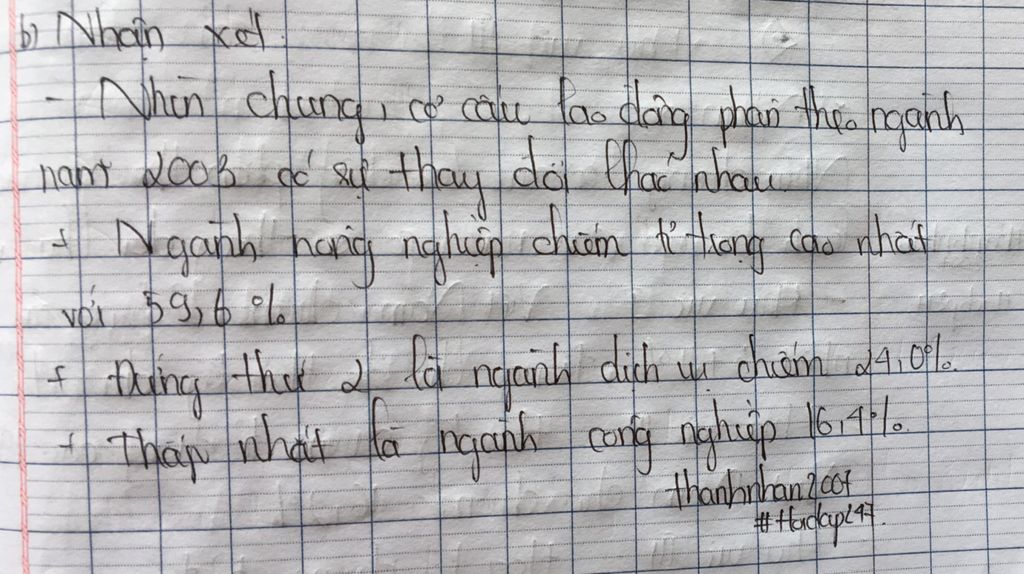 b) Nhận xét:
- Nhìn chung, cơ cấu lao động phân theo ngành
năm 2003 có sự thay đổi khác nhau
+ Ngành nông nghiệp chiếm tỉ trọng cao nhất
với 59,6 %
+ Đứng thứ 2 là ngành dịch vụ chiếm 24,0%.
+ Thấp nhất là ngành công nghiệp 16,4%.
thanhnhan2007
#Hoidap247.